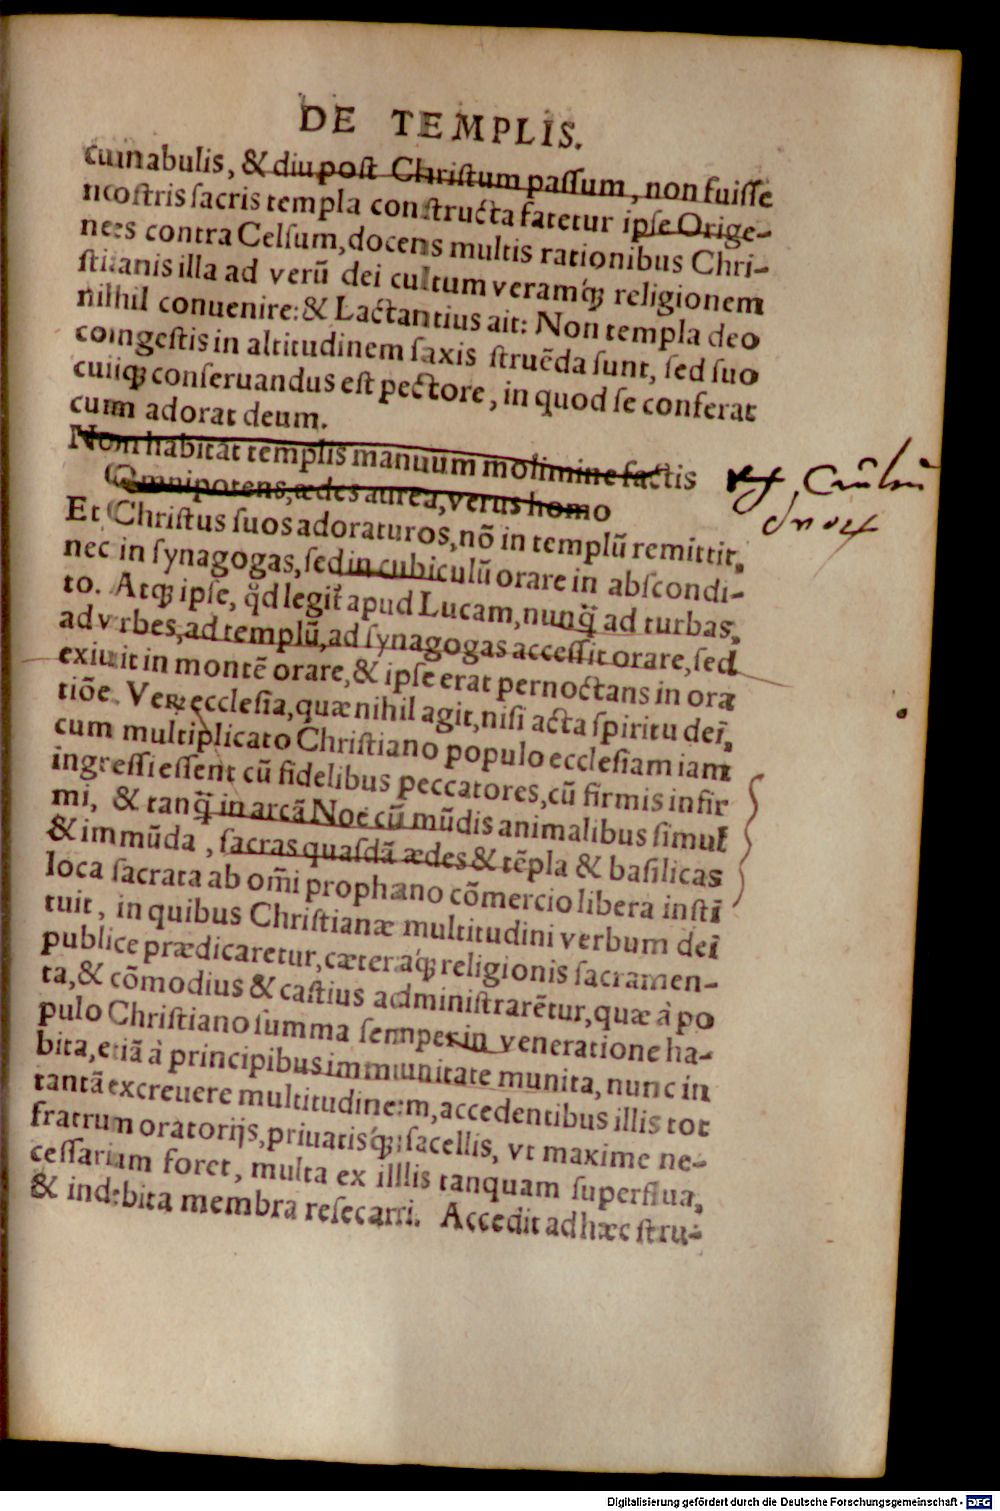 DE TEMPLIS.
cunabulis, & diu post Christum passum, non fuisse
nostris sacris templa constructa fatetur ipse Orige-
nes contra Celsum, docens multis rationibus Chri-
stianis illa ad verū dei cultum veramq́; religionem
nihil conuenire: & Lactantius ait: Non templa deo
congestis in altitudinem saxis struēda sunt, sed suo
cuiq; conseruandus est pectore, in quod se conferat
cum adorat deum.
Non habitat templis manuum molimine factis
Omnipotens, ædes aurea, verus homo
Et Christus suos adoraturos, nō in templū remittit,
nec in synagogas, sed in cubiculū orare in abscondi-
to. Atq; ipse, qd̄ legit̄ apud Lucam, nunq̄ ad turbas,
ad vrbes, ad templū, ad synagogas accessit orare, sed
exiuit in montē orare, & ipse erat pernoctans in ora
tiōe. Verū ecclesia, quæ nihil agit, nisi acta spiritu dei,
cum multiplicato Christiano populo ecclesiam iam
ingressi essent cū fidelibus peccatores, cū firmis infir
mi, & tanq̄ in arcā Noe cū mūdis animalibus simul
& immūda, sacras quasdā ædes & tēpla & basilicas
loca sacrata ab om̄i prophano cōmercio libera insti
tuit, in quibus Christianæ multitudini verbum dei
publice prædicaretur, cæteraq́; religionis sacramen-
ta, & cōmodius & castius administrarētur, quæ à po
pulo Christiano summa semper in veneratione ha-
bita, etiā à principibus immunitate munita, nunc in
tantā excreuere multitudinem, accedentibus illis tot
fratrum oratorijs, priuatisq́; sacellis, vt maxime ne-
cessarium foret, multa ex illis tanquam superflua,
& indebita membra resecarri. Accedit ad hæc stru-
Digitalisierung gefördert durch die Deutsche Forschungsgemeinschaft - DFG